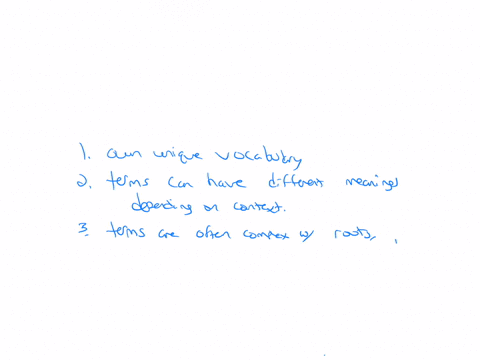 1. own unique vocabulary
2. terms can have different meanings
depending on context.
3. terms are often complex w/ roots,